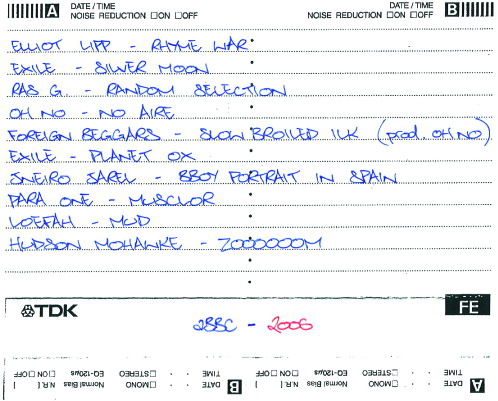 A DATE / TIME DATE / TIME B
NOISE REDUCTION □ON □OFF NOISE REDUCTION □ON □OFF
ELLIOT LIPP - RHYME WAR
EXILE - SILVER MOON
RAS G. - RANDOM SELECTION
OH NO - NO AIRE
FOREIGN BEGGARS - SLOW BROILED ILK (prod. OH NO)
EXILE - PLANET OX
JNEIRO JAREL - BBOY PORTRAIT IN SPAIN
PARA ONE - MUSCLOR
LOEFAH - MUD
HUDSON MOHAWKE - ZOOOOOOM
TDK FE
2BBC - 2006
A DATE TIME Normal Bias EQ-120µs N.R. [ □MONO □STEREO □ON □OFF
B DATE TIME Normal Bias EQ-120µs N.R. [ □MONO □STEREO □ON □OFF